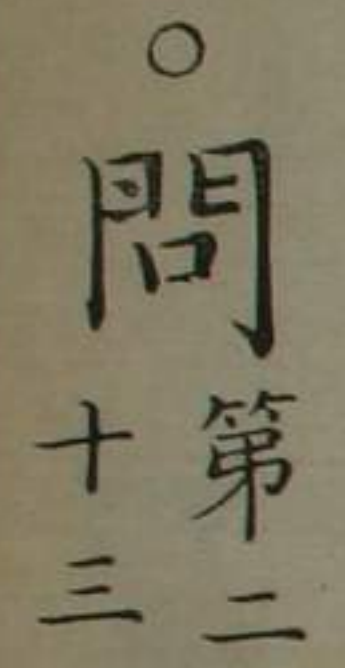 ○問
第二
十三